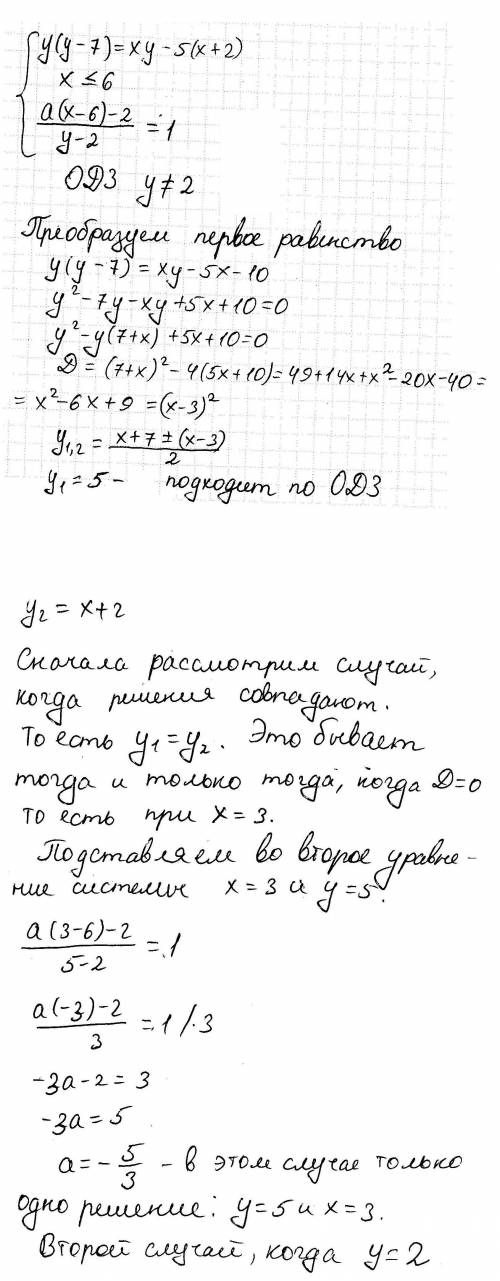 y(y-7)=xy-5(x+2)
x ≤ 6
a(x-6)-2 / y-2 = 1
ОДЗ y≠2
Преобразуем первое равенство
y(y-7)=xy-5x-10
y²-7y-xy+5x+10=0
y²-y(7+x)+5x+10=0
D=(7+x)²-4(5x+10)=49+14x+x²-20x-40=
=x²-6x+9=(x-3)²
y₁,₂ = x+7±(x-3) / 2
y₁=5 - подходит по ОДЗ
y₂=x+2
Сначала рассмотрим случай,
когда решения совпадают.
То есть y₁=y₂. Это бывает
тогда и только тогда, когда D=0
то есть при x=3.
Подставляем во второе уравне-
ние системы x=3 и y=5.
a(3-6)-2 / 5-2 = 1
a(-3)-2 / 3 = 1 /·3
-3a-2=3
-3a=5
a=-5/3 - в этом случае только
одно решение: y=5 и x=3.
Второй случай, когда y=2